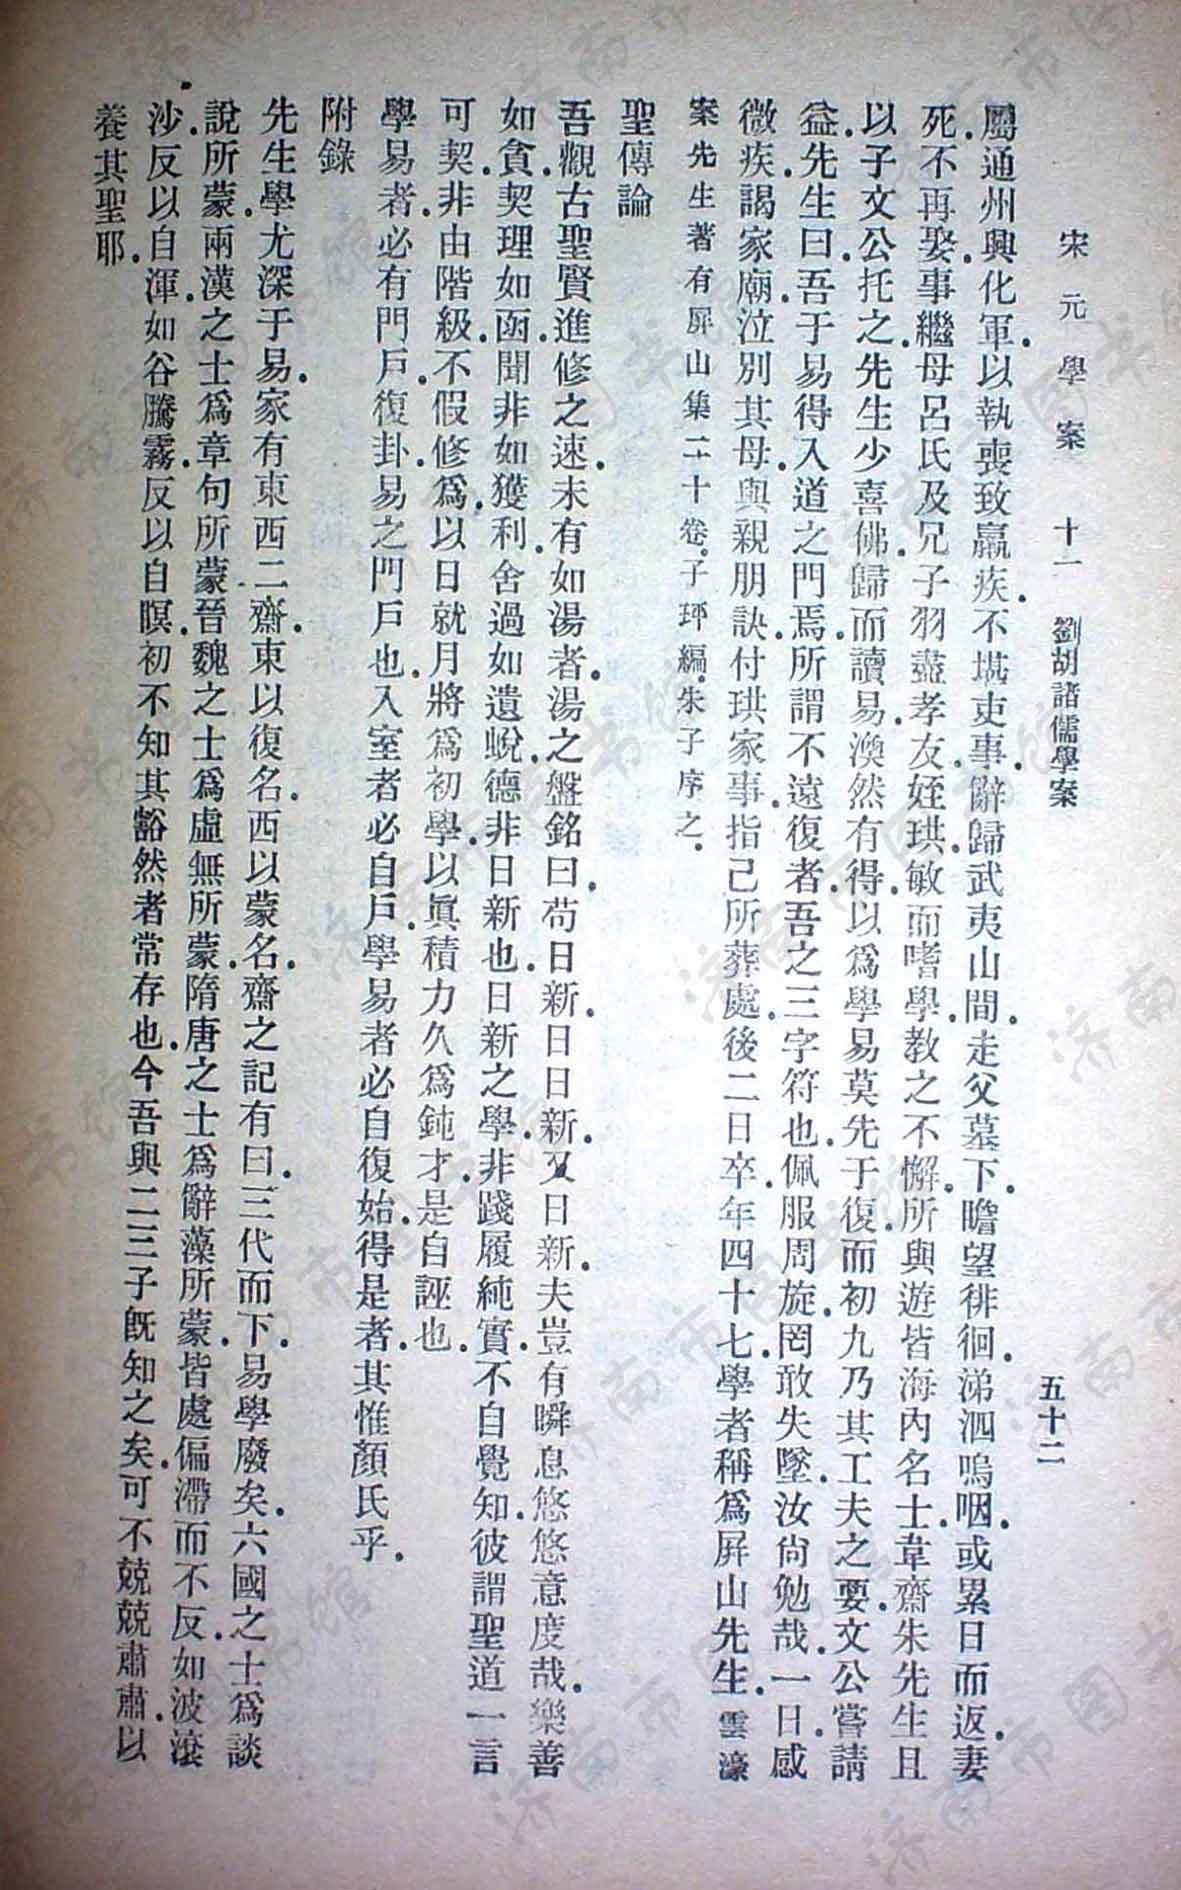 宋元學案 十一 劉胡諸儒學案 五十二
屬通州興化軍以執喪致羸疾不堪吏事辭歸武夷山間走父墓下瞻望徘徊涕泗嗚咽或累日而返妻
死不再娶事繼母呂氏及兄子羽盡孝友姪珙敏而嗜學教之不懈所與遊皆海內名士韋齋朱先生且
以子文公托之先生少喜佛歸而讀易渙然有得以爲學易莫先于復而初九乃其工夫之要文公嘗請
益先生曰吾于易得入道之門焉所謂不遠復者吾之三字符也佩服周旋罔敢失墜汝尙勉哉一日感
微疾謁家廟泣別其母與親朋訣付珙家事指己所葬處後二日卒年四十七學者稱爲屛山先生雲濠
案先生著有屛山集二十卷子玶編朱子序之
聖傳論
吾觀古聖賢進修之速未有如湯者湯之盤銘曰苟日新日日新又日新夫豈有瞬息悠悠意度哉樂善
如貪契理如函聞非如獲利舍過如遺蛻德非日新也日新之學非踐履純實不自覺知彼謂聖道一言
可契非由階級不假修爲以日就月將爲初學以眞積力久爲鈍才是自誣也
學易者必有門戶復卦易之門戶也入室者必自戶學易者必自復始得是者其惟顏氏乎
附錄
先生學尤深于易家有東西二齋東以復名西以蒙名齋之記有曰三代而下易學廢矣六國之士爲談
說所蒙兩漢之士爲章句所蒙晉魏之士爲虛無所蒙隋唐之士爲辭藻所蒙皆處偏滯而不反如波滾
沙反以自渾如谷騰霧反以自暝初不知其豁然者常存也今吾與二三子旣知之矣可不兢兢肅肅以
養其聖耶